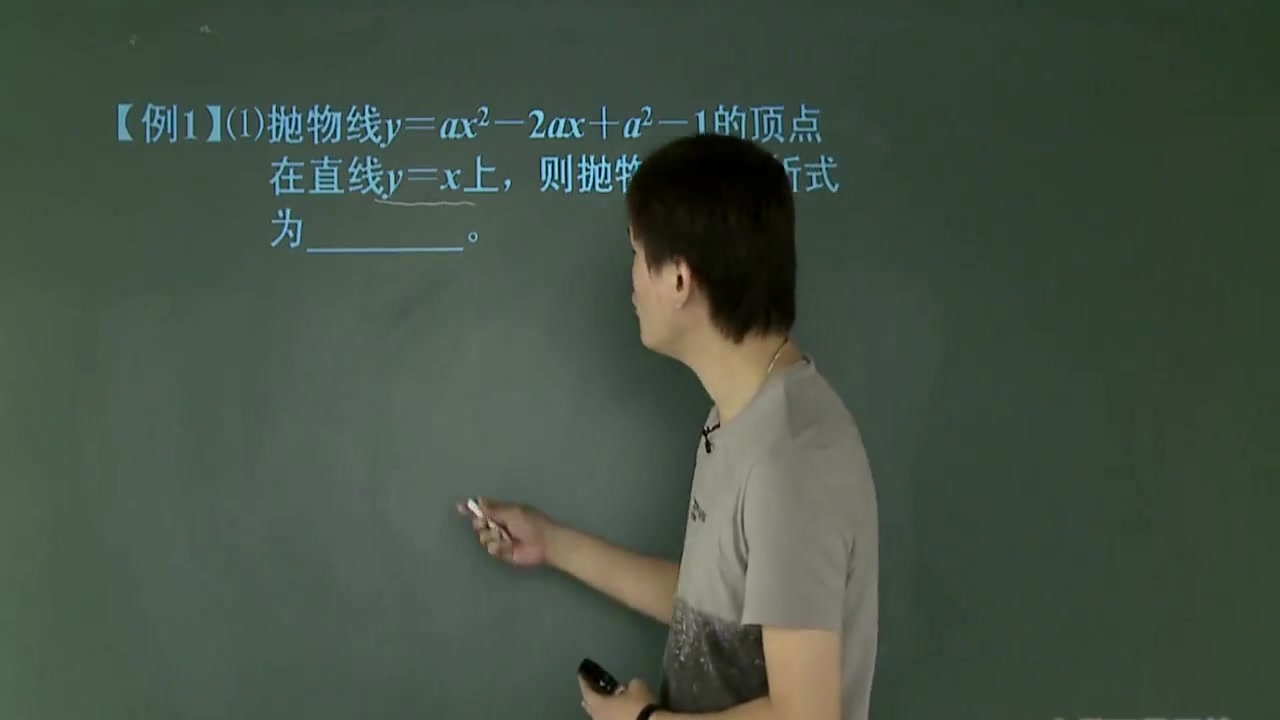 【例1】⑴抛物线y=ax²-2ax+a²-1的顶点
在直线y=x上，则抛物 式
为________。